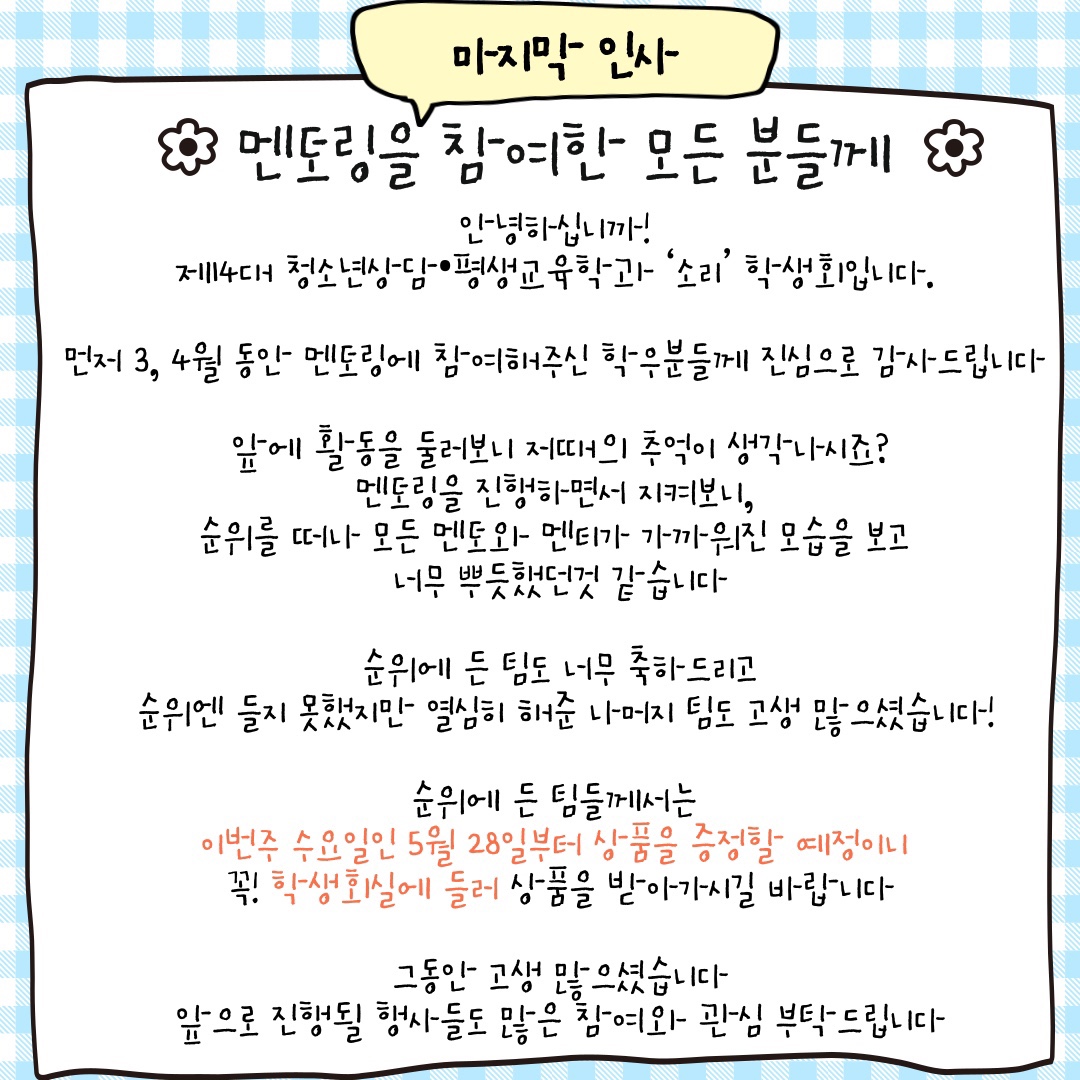 마지막 인사
멘토링을 참여한 모든 분들께
안녕하십니까!
제4대 청소년상담•평생교육학과 ‘소리’ 학생회입니다.
먼저 3, 4월 동안 멘토링에 참여해주신 학우분들께 진심으로 감사드립니다
앞에 활동을 둘러보니 저때의 추억이 생각나시죠?
멘토링을 진행하면서 지켜보니,
순위를 떠나 모든 멘토와 멘티가 가까워진 모습을 보고
너무 뿌듯했던것 같습니다
순위에 든 팀도 너무 축하드리고
순위엔 들지 못했지만 열심히 해준 나머지 팀도 고생 많으셨습니다!
순위에 든 팀들께서는
이번주 수요일인 5월 28일부터 상품을 증정할 예정이니
꼭! 학생회실에 들러 상품을 받아가시길 바랍니다
그동안 고생 많으셨습니다
앞으로 진행될 행사들도 많은 참여와 관심 부탁드립니다